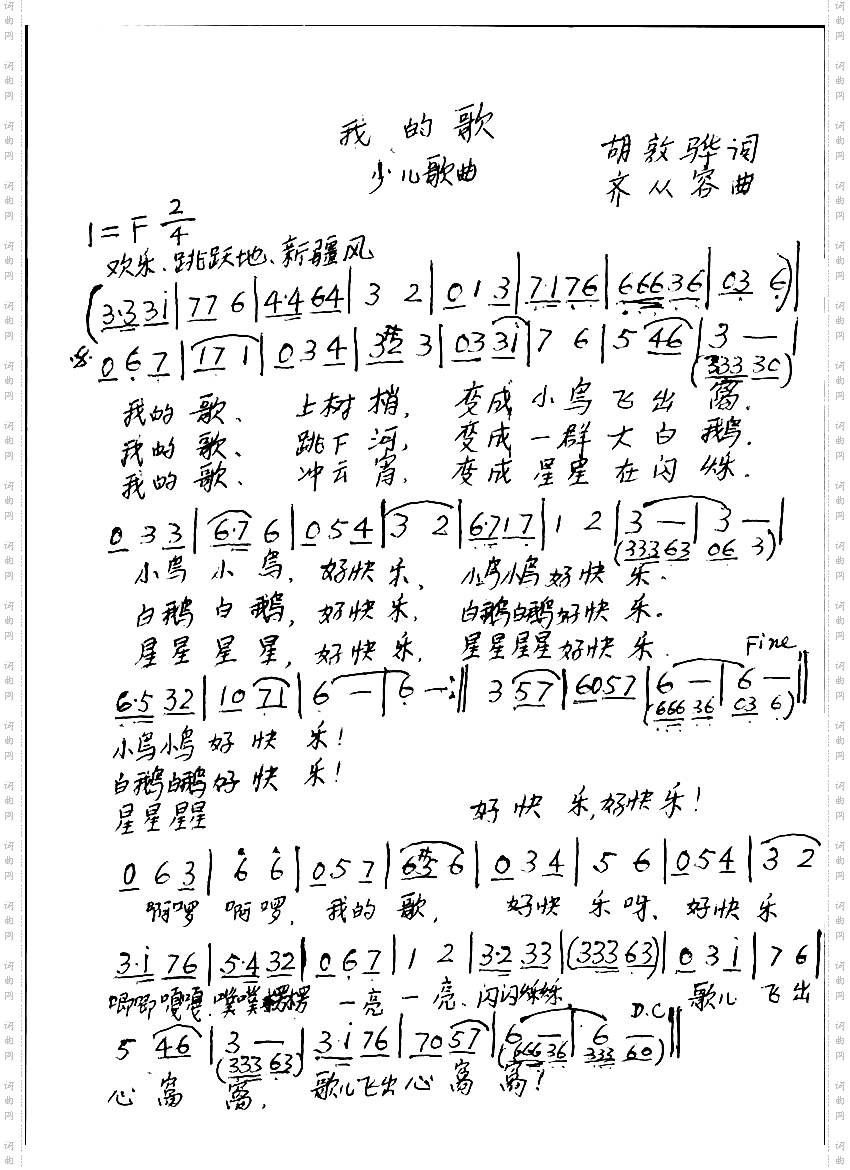 我的歌
少儿歌曲
胡敦骅词
齐从容曲
1=F 2/4
欢乐、跳跃地、新疆风
(3·3 3i|77 6|4·4 64|3 2|0 1 3|7·1 76|666 36|03 6)|
0 6 7|17 1|0 3 4|32 3|03 3i|7 6|5 46|3 —|
(333 30)
我的歌、 上树梢, 变成小鸟飞出窝.
我的歌、 跳下河, 变成一群大白鹅.
我的歌、 冲云宵, 变成星星在闪烁.
0 3 3|6·7 6|0 5 4|3 2|6·7 17|1 2|3 —|3 —|
(333 63 06 3)
小鸟小鸟, 好快乐、 小鸟小鸟好快乐.
白鹅白鹅, 好快乐, 白鹅白鹅好快乐.
星星星星, 好快乐, 星星星星好快乐.
Fine
6·5 32|10 71|6 —|6 —:‖ 3 57|60 57|6 —|6 —‖
(666 36 03 6)
小鸟小鸟好快乐!
白鹅白鹅好快乐!
星星星星 好快乐,好快乐!
0 6 3|6 6|0 5 7|63 6|0 3 4|5 6|0 5 4|3 2
啊啰啊啰, 我的歌, 好快乐呀、好快乐
3·i 76|5·4 32|0 6 7|1 2|3·2 33|(333 63)|0 3 i|7 6|
唧唧嘎嘎、噗噗楞楞 一亮一亮、闪闪烁烁, 歌儿飞出
D.C
5 46|3 —|3·i 76|70 57|6 —|6 —‖
(333 63) (666 36 333 60)
心窝窝, 歌儿飞出心窝窝!
词曲网